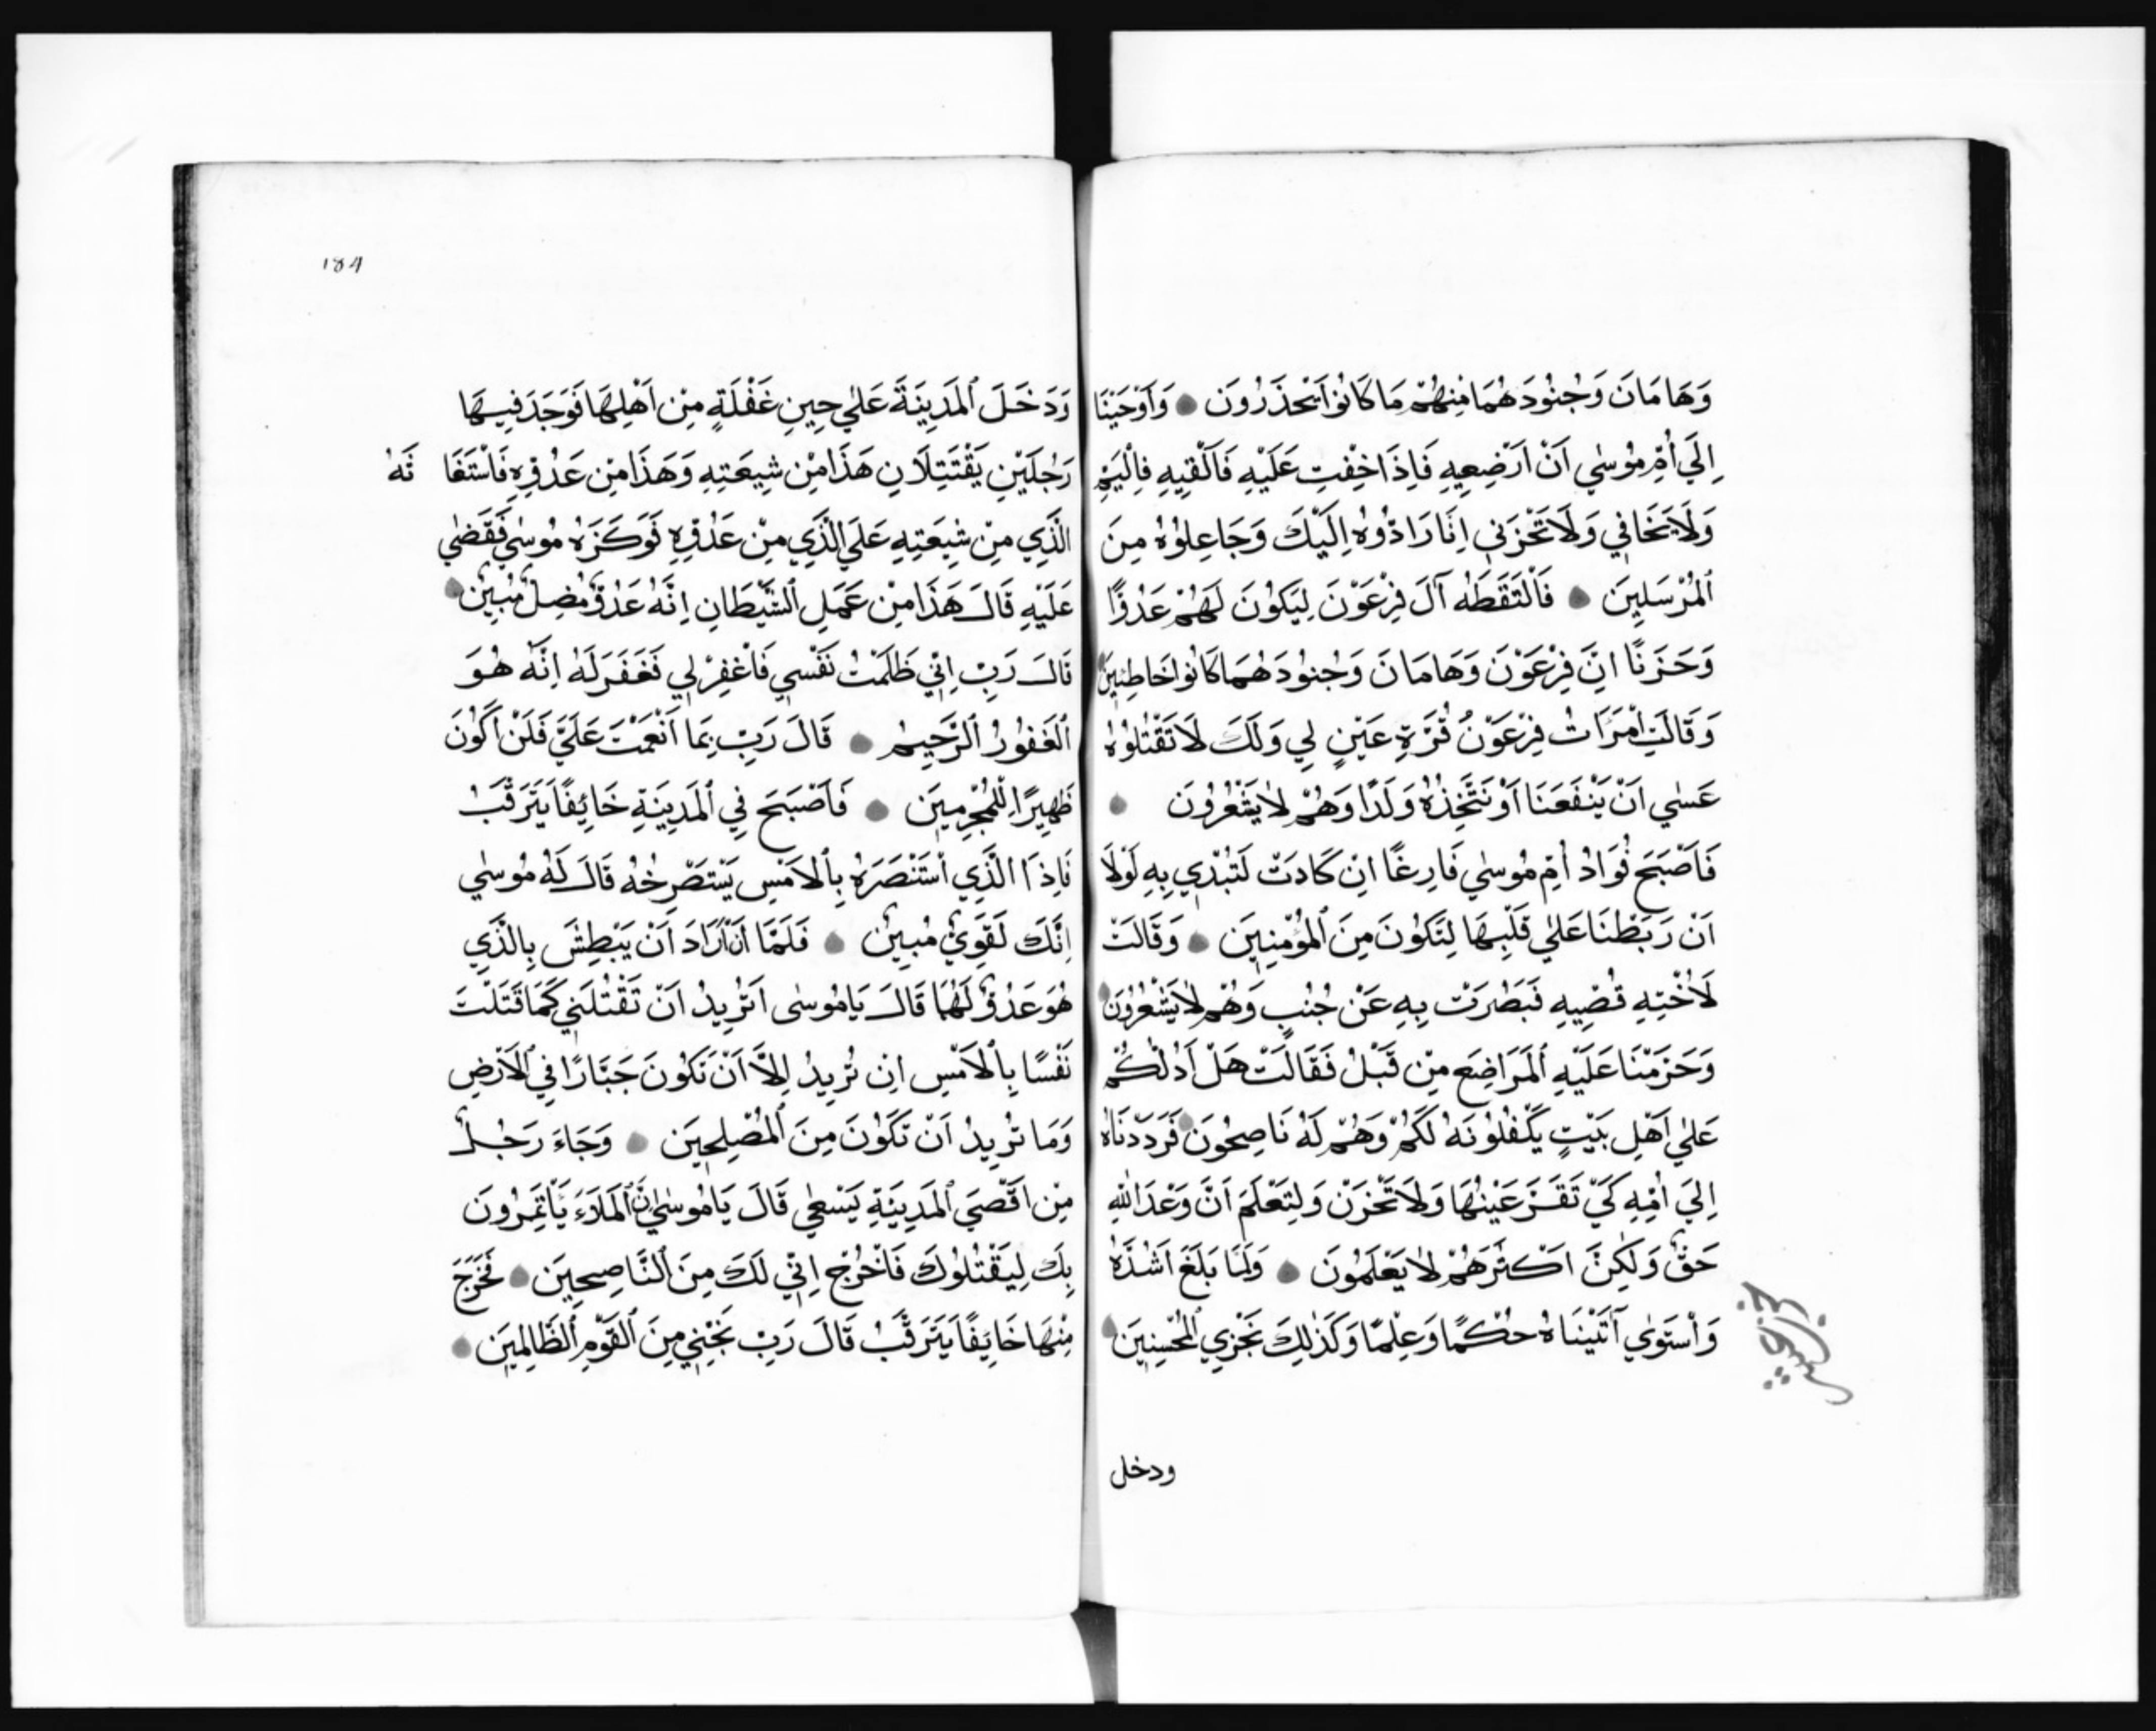 وَهَامَانَ وَجُنُودَهُمَا مِنْهُمْ مَا كَانُوا يَحْذَرُونَ وَأَوْحَيْنَا
اِلَي أُمِّ مُوسٰي اَنْ اَرْضِعِيهِ فَاِذَا خِفْتِ عَلَيْهِ فَاَلْقِيهِ فِي الْيَمِّ
وَلَا تَخَافِي وَلَا تَحْزَنِي اِنَّا رَادُّوهُ اِلَيْكَ وَجَاعِلُوهُ مِنَ
الْمُرْسَلِينَ فَالْتَقَطَهُ آلَ فِرْعَوْنَ لِيَكُونَ لَهُمْ عَدُوًّا
وَحَزَنًا اِنَّ فِرْعَوْنَ وَهَامَانَ وَجُنُودَهُمَا كَانُوا خَاطِئِينَ
وَقَالَتِ امْرَاَتُ فِرْعَوْنَ قُرَّةِ عَيْنٍ لِي وَلَكَ لَا تَقْتُلُوهُ
عَسٰي اَنْ يَنْفَعَنَا اَوْ نَتَّخِذَهُ وَلَدًا وَهُمْ لَا يَشْعُرُونَ
فَاَصْبَحَ فُوَادُ اُمِّ مُوسٰي فَارِغًا اِنْ كَادَتْ لَتُبْدِي بِهِ لَوْلَا
اَنْ رَبَطْنَا عَلٰي قَلْبِهَا لِتَكُونَ مِنَ الْمُؤْمِنِينَ وَقَالَتْ
لَاُخْتِهِ قُصِّيهِ فَبَصُرَتْ بِهِ عَنْ جُنُبٍ وَهُمْ لَا يَشْعُرُونَ
وَحَرَّمْنَا عَلَيْهِ الْمَرَاضِعَ مِنْ قَبْلُ فَقَالَتْ هَلْ اَدُلُّكُمْ
عَلٰي اَهْلِ بَيْتٍ يَكْفُلُونَهُ لَكُمْ وَهُمْ لَهُ نَاصِحُونَ فَرَدَدْنَاهُ
اِلَيَ اُمِّهِ كَيْ تَقَرَّ عَيْنُهَا وَلَا تَحْزَنْ وَلِتَعْلَمَ اَنَّ وَعْدَ اللّٰهِ
حَقٌّ وَلٰكِنَّ اَكْثَرَهُمْ لَا يَعْلَمُونَ وَلَمَّا بَلَغَ اَشُدَّهُ
وَاسْتَوٰي آتَيْنَاهُ حُكْمًا وَعِلْمًا وَكَذٰلِكَ نَجْزِي الْمُحْسِنِينَ
ودخل
184
وَدَخَلَ الْمَدِينَةَ عَلٰي حِينِ غَفْلَةٍ مِنْ اَهْلِهَا فَوَجَدَ فِيهَا
رَجُلَيْنِ يَقْتَتِلَانِ هَذَا مِنْ شِيعَتِهِ وَهَذَا مِنْ عَدُوِّهِ فَاسْتَغَا ثَهُ
الَّذِي مِنْ شِيعَتِهِ عَلَي الَّذِي مِنْ عَدُوِّهِ فَوَكَزَهُ مُوسٰي فَقَضٰي
عَلَيْهِ قَالَ هَذَا مِنْ عَمَلِ الشَّيْطَانِ اِنَّهُ عَدُوٌّ مُضِلٌّ مُبِينٌ
قَالَ رَبِّ اِنِّي ظَلَمْتُ نَفْسِي فَاغْفِرْ لِي فَغَفَرَ لَهُ اِنَّهُ هُوَ
الْغَفُورُ الرَّحِيمُ قَالَ رَبِّ بِمَا اَنْعَمْتَ عَلَيَّ فَلَنْ اَكُونَ
ظَهِيرًا لِلْمُجْرِمِينَ فَاَصْبَحَ فِي الْمَدِينَةِ خَائِفًا يَتَرَقَّبُ
فَاِذَا الَّذِي اسْتَنْصَرَهُ بِالْاَمْسِ يَسْتَصْرِخُهُ قَالَ لَهُ مُوسٰي
اِنَّكَ لَقَوِيٌّ مُبِينٌ فَلَمَّا اَنْ اَرَادَ اَنْ يَبْطِشَ بِالَّذِي
هُوَ عَدُوٌّ لَهُمَا قَالَ يَا مُوسٰى اَتُرِيدُ اَنْ تَقْتُلَنِي كَمَا قَتَلْتَ
نَفْسًا بِالْاَمْسِ اِنْ تُرِيدُ اِلَّا اَنْ تَكُونَ جَبَّارًا فِي الْاَرْضِ
وَمَا تُرِيدُ اَنْ تَكُونَ مِنَ الْمُصْلِحِينَ وَجَاءَ رَجُلٌ
مِنْ اَقْصَيَ الْمَدِينَةِ يَسْعٰي قَالَ يَا مُوسٰي اِنَّ الْمَلَاَءَ يَاْتَمِرُونَ
بِكَ لِيَقْتُلُوكَ فَاخْرُجْ اِنِّي لَكَ مِنَ النَّاصِحِينَ فَخَرَجَ
مِنْهَا خَائِفًا يَتَرَقَّبُ قَالَ رَبِّ نَجِّنِي مِنَ الْقَوْمِ الظَّالِمِينَ